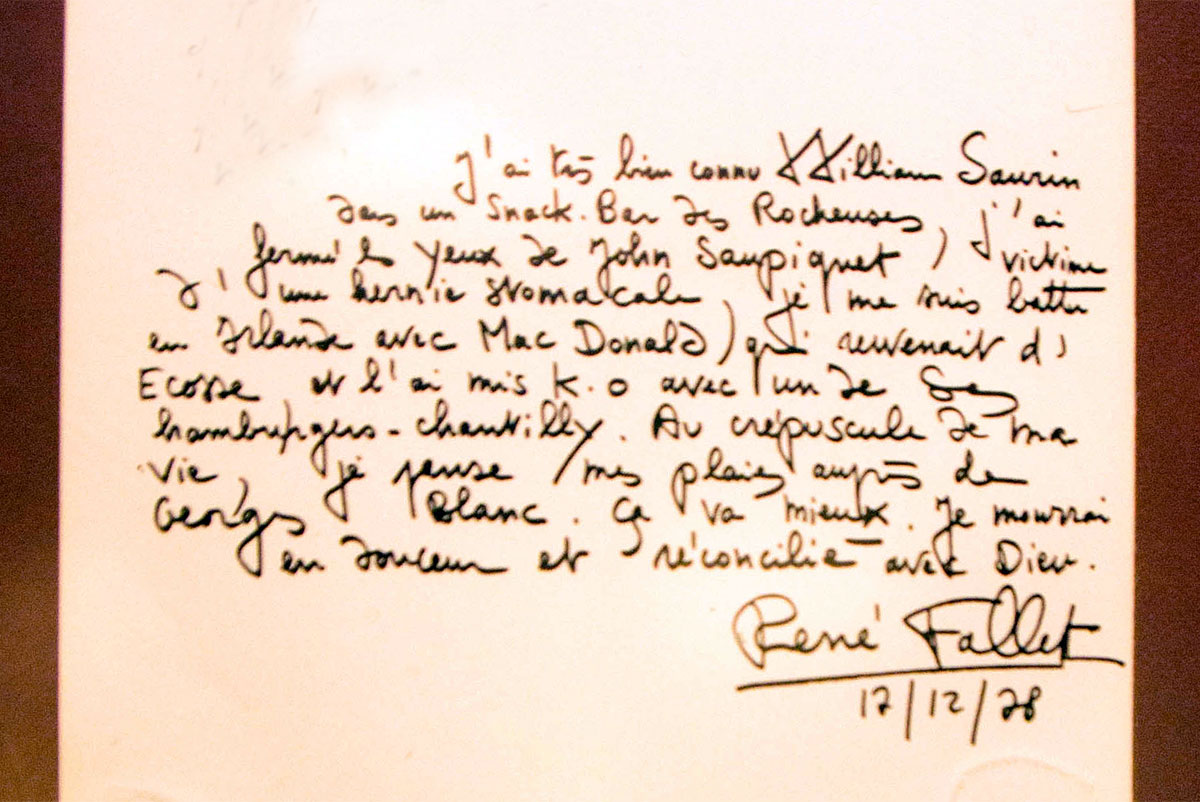 J'ai très bien connu William Saurin
dans un Snack-Bar des Rocheuses, j'ai
fermé les yeux de John Saupiquet, victime
d'une hernie stomacale, je me suis battu
en Irlande avec Mac Donald, qui revenait d'
Ecosse et l'ai mis K.O avec un de ses
hamburgers-chantilly. Au crépuscule de ma
vie, je panse mes plaies auprès de
Georges Blanc. Ça va mieux. Je mourrai
en douceur et réconcilié avec Dieu.
René Fallet
17/12/78